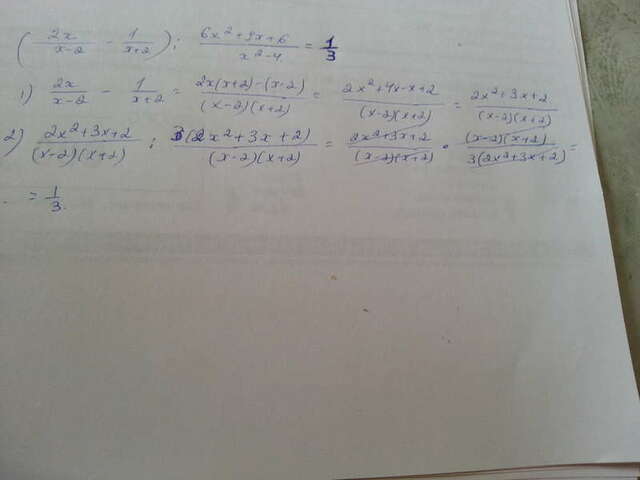 (2x/(x-2) - 1/(x+2)) : (6x²+9x+6)/(x²-4) = 1/3
1) 2x/(x-2) - 1/(x+2) = (2x(x+2)-(x-2))/((x-2)(x+2)) = (2x²+4x-x+2)/((x-2)(x+2)) = (2x²+3x+2)/((x-2)(x+2))
2) (2x²+3x+2)/((x-2)(x+2)) : 3(2x²+3x+2)/((x-2)(x+2)) = (2x²+3x+2)/((x-2)(x+2)) · ((x-2)(x+2))/(3(2x²+3x+2)) =
= 1/3.